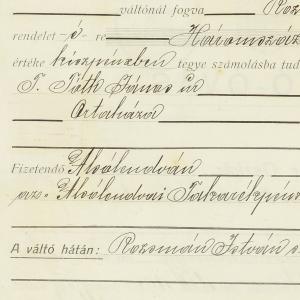 váltónál fogva Roz
rendelet -é- re Háromszáz
értéke készpénzben tegye számolásba tud
T. Tóth János úr
Ortaháza
Fizetendő Alsólendván
az: Alsólendvai Takarékpénz
A váltó hátán: Rozmán István s